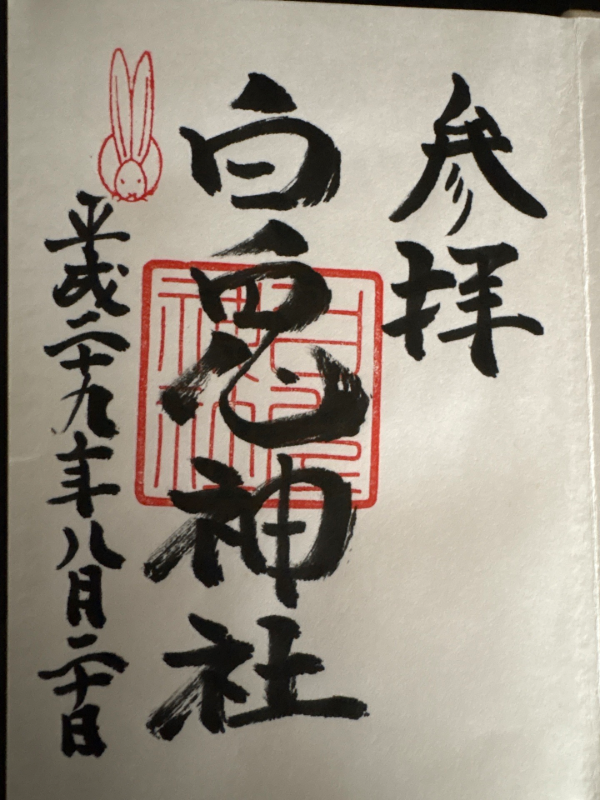 参拝
白兎神社
平成二十九年八月二十日